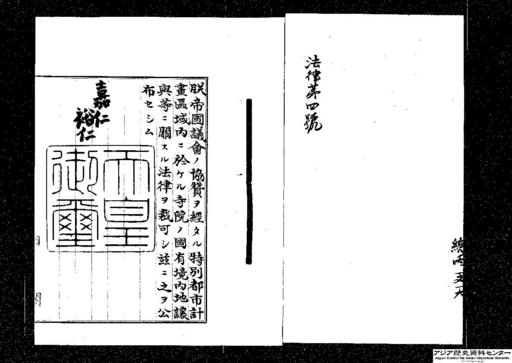 法律第四號
朕帝國議會ノ協贊ヲ經タル特別都市計
畫區域內ニ於ケル寺院ノ國有境內地讓
與等ニ關スル法律ヲ裁可シ玆ニ之ヲ公
布セシム
嘉仁
裕仁
天皇
御璽
アジア歴史資料センター
Japan Center for Asian Historical Records